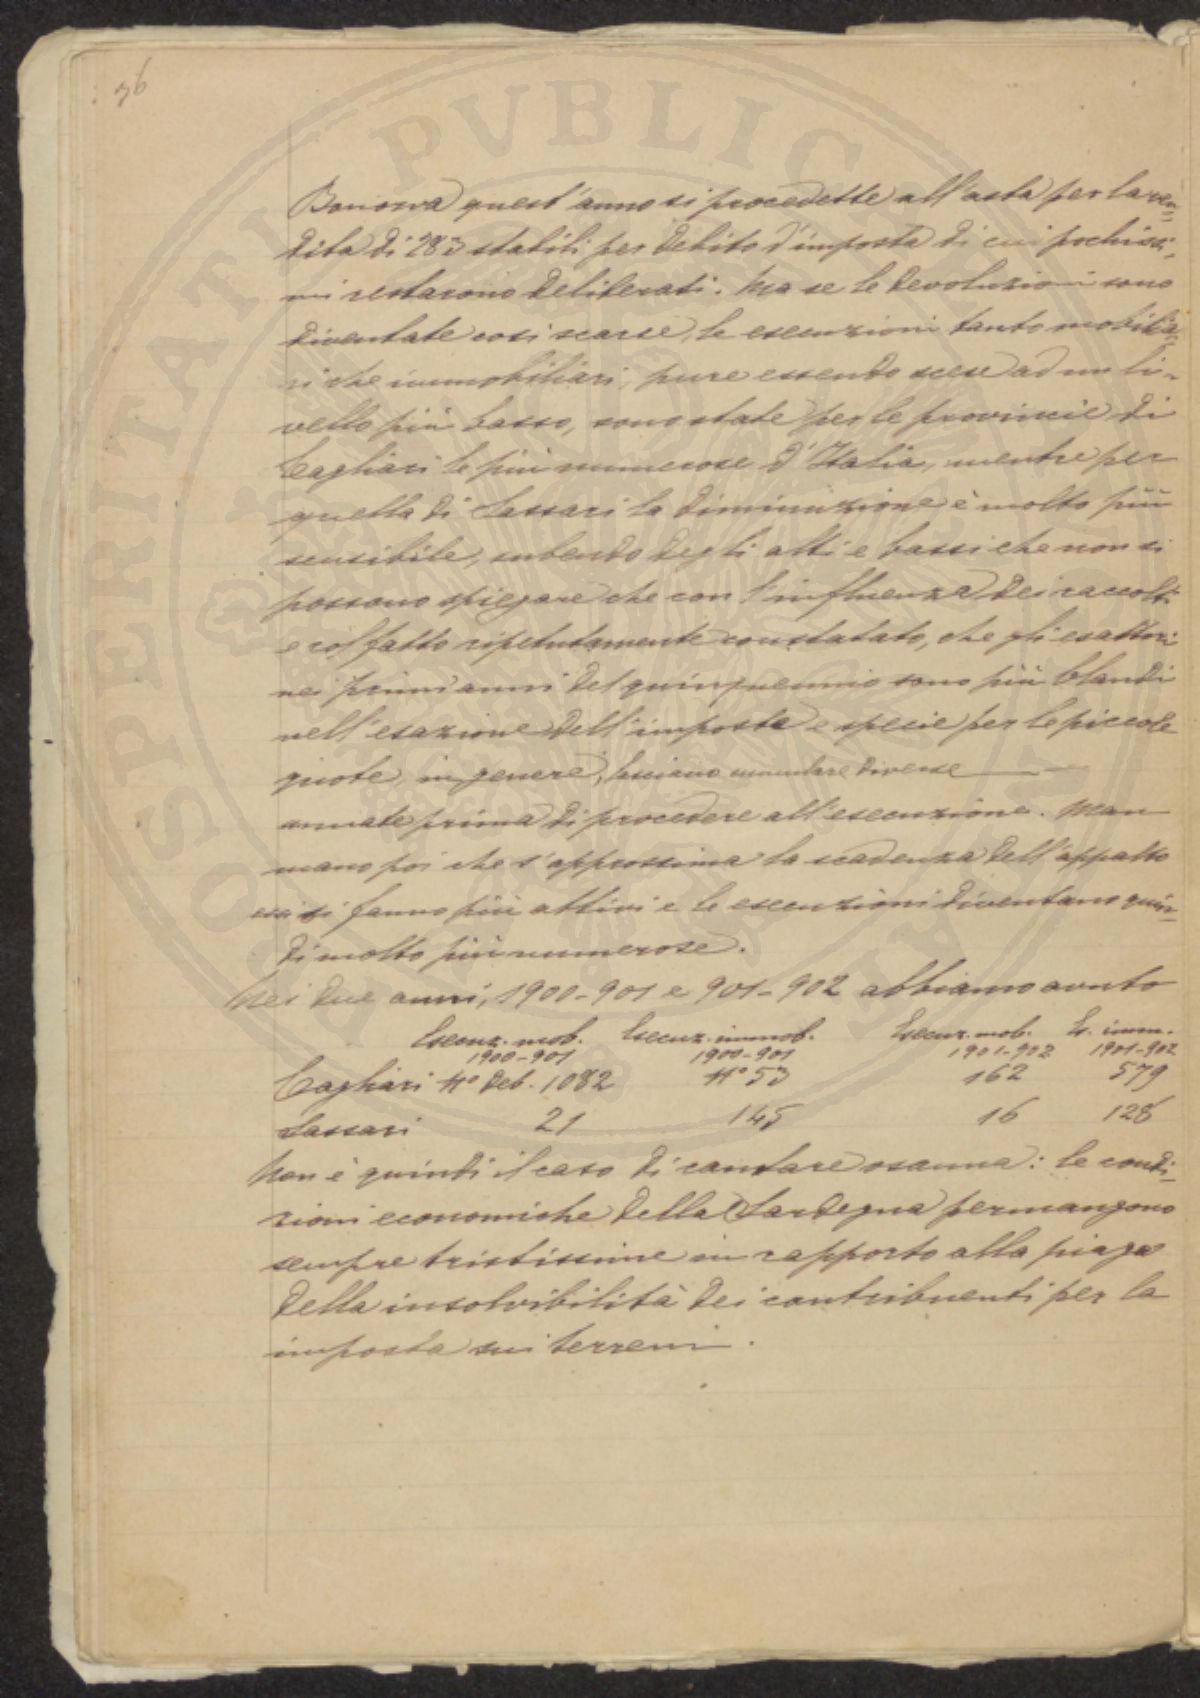 36
Bonorva quest'anno si procedette all'asta per la ven=
dita di 283 stabili per debito d'imposta di cui pochissi=
mi restarono deliberati. Ma se le devoluzioni sono
diventate così scarse, le esecuzioni tanto mobilia=
ri che immobiliari, pure essendo scese ad un li-
vello più basso, sono state per le provincie di
Cagliari le più numerose d'Italia, mentre per
quella di Sassari la diminuzione è molto più
sensibile, subendo degli alti e bassi che non si
possono spiegare che con l'influenza dei raccolti
e col fatto ripetutamente constatato, che gli esattori
nei primi anni del quinquennio sono più blandi
nell'esazione dell'imposta e specie per le piccole
quote, in genere, lasciano cumulare diverse
annate prima di procedere all'esecuzione. Man
mano poi che s'approssima la scadenza dell'appalto
essi si fanno più attivi e le esecuzioni diventano quin=
di molto più numerose.
Nei due anni, 1900-901 e 901-902 abbiamo avuto
Esecuz. mob. Esecuz. immob. Esecuz. mob. Es. imm.
1900-901 1900-901 1901-902 1901-902
Cagliari N° deb. 1082 N° 53 162 579
Sassari 21 145 16 128
Non è quindi il caso di cantare osanna: le condi=
zioni economiche della Sardegna permangono
sempre tristissime in rapporto alla piaga
della insolvibilità dei contribuenti per la
imposta sui terreni.
PVBLIC
SPERITATI